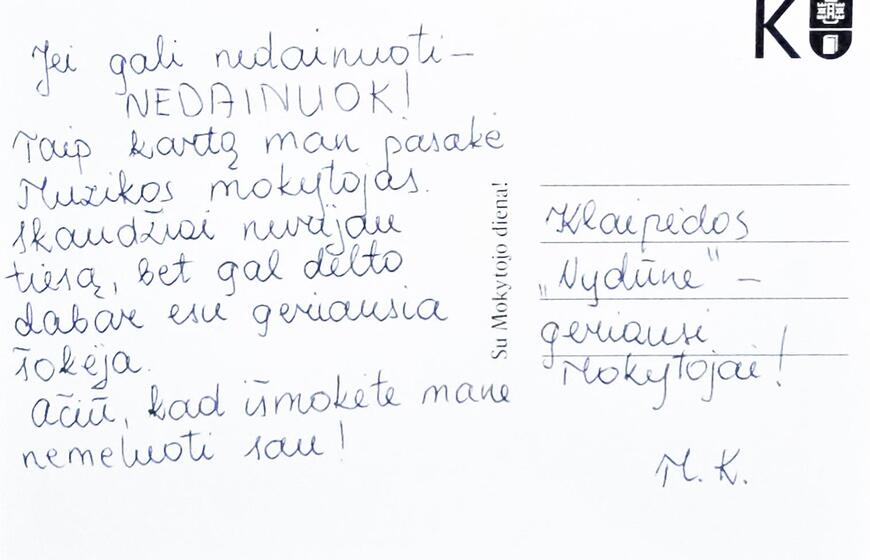 Jei gali nedainuoti –
NEDAINUOK!
Taip kartą man pasakė
Muzikos mokytojas.
Skaudžiai nurijau
tiesą, bet gal dėlto
dabar esu geriausia
šokėja.
Ačiū, kad išmokėte mane
nemeluoti sau!
Su Mokytojo diena!
KU
Klaipėdos
„Vydūne“ –
geriausi
Mokytojai!
M. K.